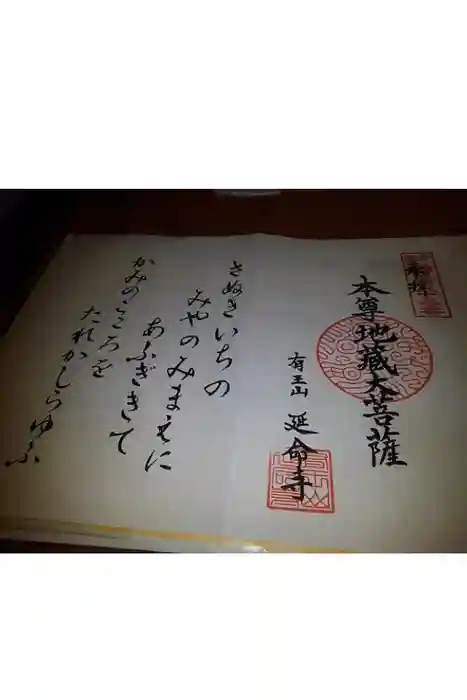 奉拝
本尊地蔵大菩薩
有王山 延命寺
さぬきいちの
みやのみまえに
あふぎきて
かみのこころを
たれかしらゆふ